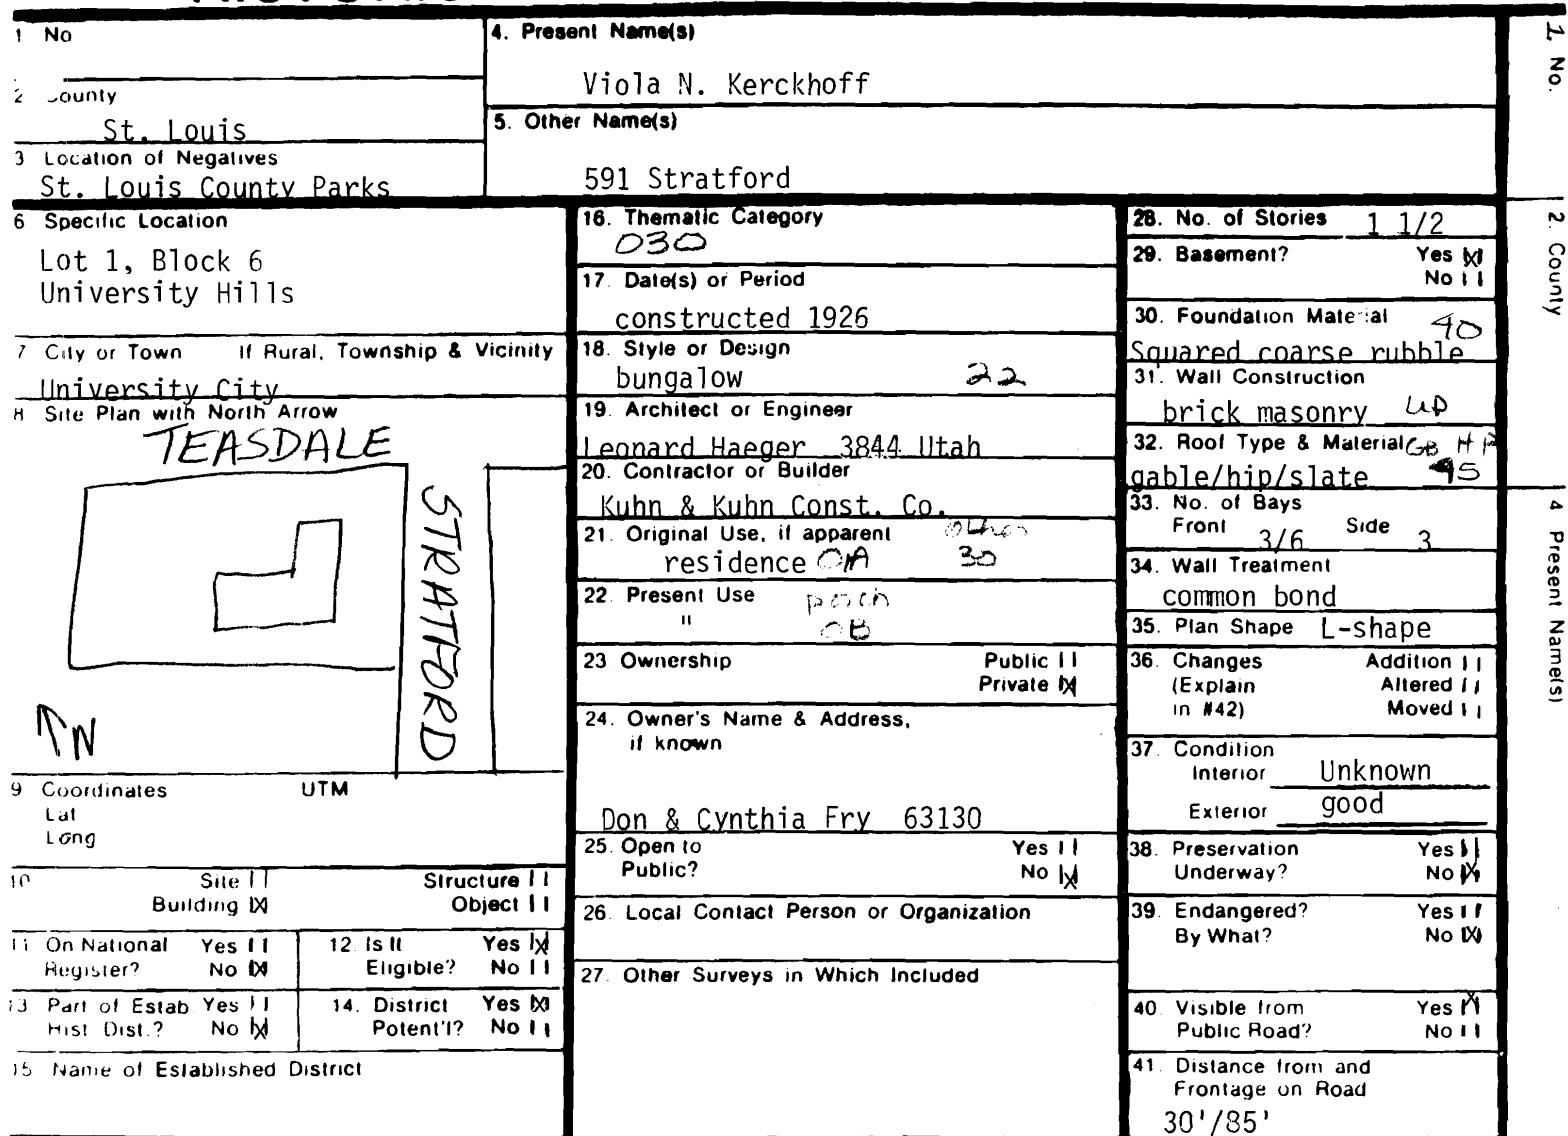 1 No
4. Present Name(s)
Viola N. Kerckhoff
2 County
St. Louis
5. Other Name(s)
591 Stratford
3 Location of Negatives
St. Louis County Parks
6 Specific Location
Lot 1, Block 6
University Hills
7 City or Town If Rural, Township & Vicinity
University City
8 Site Plan with North Arrow
TEASDALE
STRATFORD
N
9 Coordinates UTM
Lat
Long
10 Site Structure
Building X Object
11 On National Yes
Register? No X
12. Is It Yes X
Eligible? No
13 Part of Estab Yes
Hist Dist.? No X
14. District Yes X
Potent'l? No
15 Name of Established District
16. Thematic Category
030
17. Date(s) or Period
constructed 1926
18. Style or Design
bungalow 22
19. Architect or Engineer
Leonard Haeger 3844 Utah
20. Contractor or Builder
Kuhn & Kuhn Const. Co.
21. Original Use, if apparent other
residence 01A 30
22. Present Use porch
" OB
23 Ownership Public
Private X
24. Owner's Name & Address,
if known
Don & Cynthia Fry 63130
25. Open to Yes
Public? No X
26. Local Contact Person or Organization
27. Other Surveys in Which Included
28. No. of Stories 1 1/2
29. Basement? Yes X
No
30. Foundation Material 40
Squared coarse rubble
31. Wall Construction
brick masonry
32. Roof Type & Material GB HP
gable/hip/slate 45
33. No. of Bays
Front 3/6 Side 3
34. Wall Treatment
common bond
35. Plan Shape L-shape
36. Changes Addition
(Explain Altered
in #42) Moved
37. Condition
Interior Unknown
Exterior good
38. Preservation Yes
Underway? No X
39. Endangered? Yes
By What? No X
40. Visible from Yes X
Public Road? No
41. Distance from and
Frontage on Road
30'/85'
1. No.
2. County
4 Present Name(s)